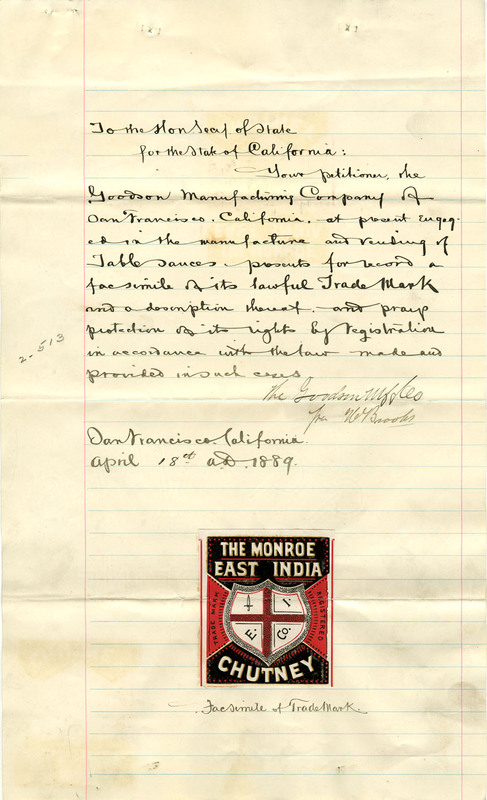 To the Hon Secy of State
for the State of California:
Your petitioner, the
Goodson Manufacturing Company of
San Francisco, California, at present engag-
ed in the manufacture and vending of
Table Sauces, presents for record a
facsimile of its lawful Trade Mark
and a description thereof, and prays
protection of its rights by registration
in accordance with the law made and
provided in such cases
2-513
The Goodson Mfg Co
per W Brooks
San Francisco. California.
April 18th A.D. 1889.
THE MONROE
EAST INDIA
TRADE MARK
REGISTERED
I.
E. Co.
CHUTNEY
Facsimile of Trade Mark.